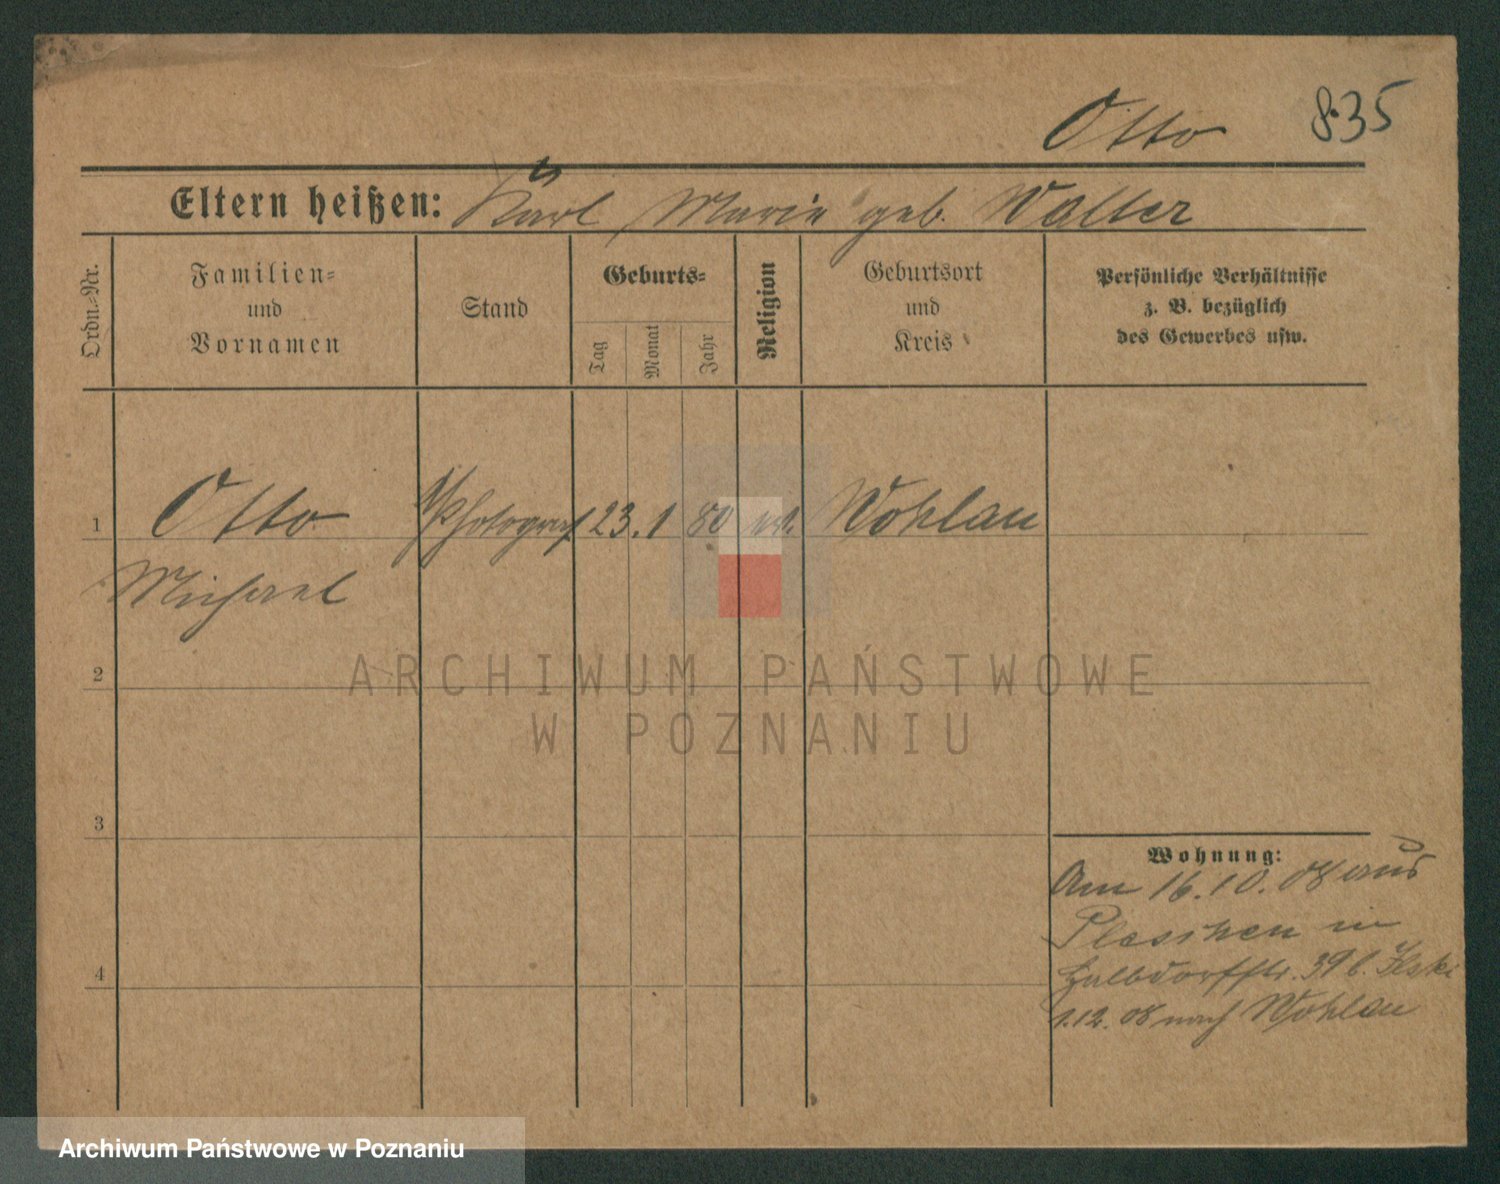 Otto 835
Eltern heißen: Karl Marie geb. Walter
Ordn.-Nr.
Familien-
und
Vornamen
Stand
Geburts-
Tag
Monat
Jahr
Religion
Geburtsort
und
Kreis
Persönliche Verhältnisse
z. B. bezüglich
des Gewerbes usw.
1 Otto Photograf 23. 1 80 Wohlau
Michael
2
3
4
Wohnung:
Am 16.10.08 aus
Pleschen in
Halbdorfstr. 39 b.
1.12.08 nach Wohlau
ARCHIWUM PAŃSTWOWE
W POZNANIU
Archiwum Państwowe w Poznaniu